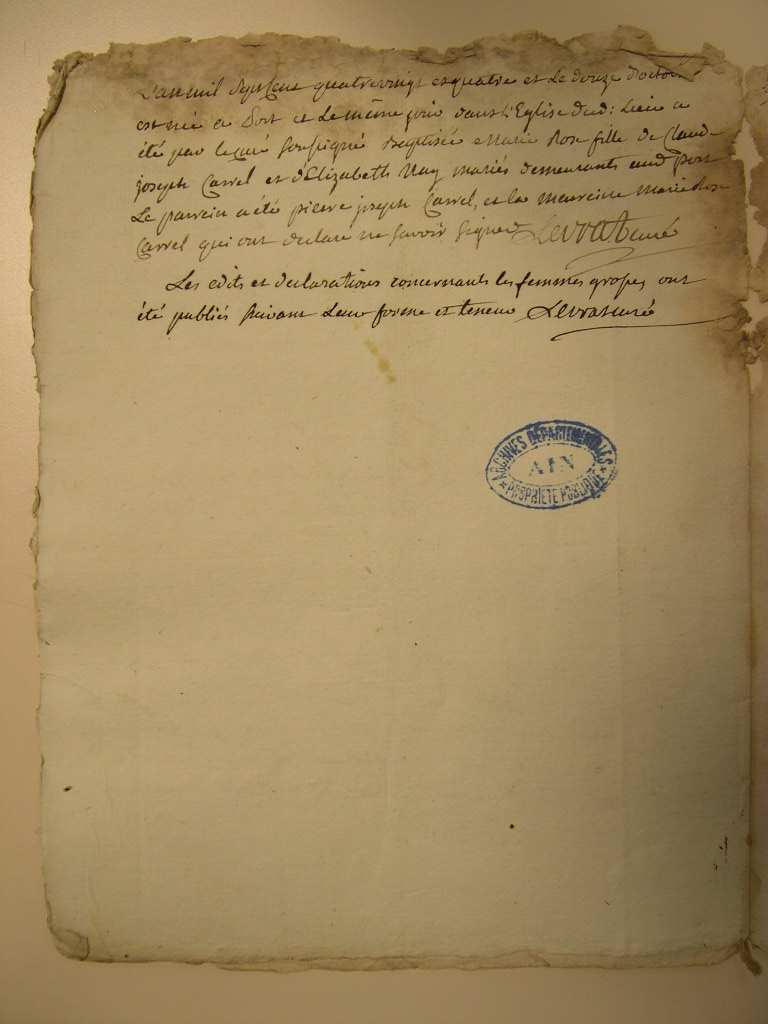 L'an mil sept cent quatre vingt et quatre et le douze d'octobre
est née a Dort et le même jour dans l'Eglise dud: Lieu a
été par le curé soussigné baptisée Marie Rose fille de Claude
joseph Carrel et d'Elizabeth mariés demeurants aud
Le parrein a été pierre joseph Carrel, et la marreine Marie Rose
Carrel qui ont declaré ne savoir signer Levrat curé
Les edits et declarations concernants les femmes grosses, ont
été publiés suivant Leur forme et teneur Levrat curé
ARCHIVES DÉPARTEMENTALES
AIN
PROPRIÉTÉ PUBLIQUE